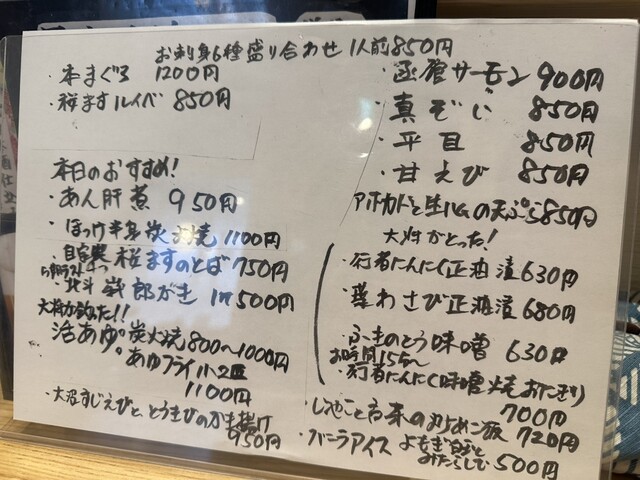 お刺身6種盛り合わせ 1人前850円
・本まぐろ 1200円
・桜ますルイベ 850円
・函館サーモン 900円
・真ぞい 850円
・平目 850円
・甘えび 850円
アボカドと生ハムの天ぷら850円
本日のおすすめ!
・あん肝煮 950円
・ほっけ半身炭火焼 1100円
・自家製 桜ますのとば 750円
北斗 岩郎がき 1ケ500円
大将が釣った!!
活あゆ。炭火焼800〜1000円
。あゆフライ小2匹
1100円
・大沼すじえびと、とうきびのかき揚げ
950円
大将がとった!
・行者にんにく正油漬 630円
・葉わさび正油漬 680円
・ふきのとう味噌 630円
お時間15分〜
・行者にんにく味噌焼おにぎり
700円
・しじみご飯 720円
・バニラアイス よもぎ白玉と
みたらし 500円